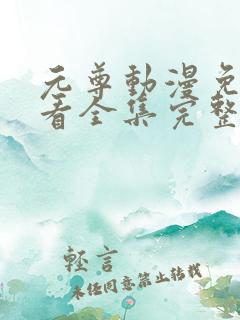 元尊動漫免
看全集完整
輕言
未经同意禁止转载